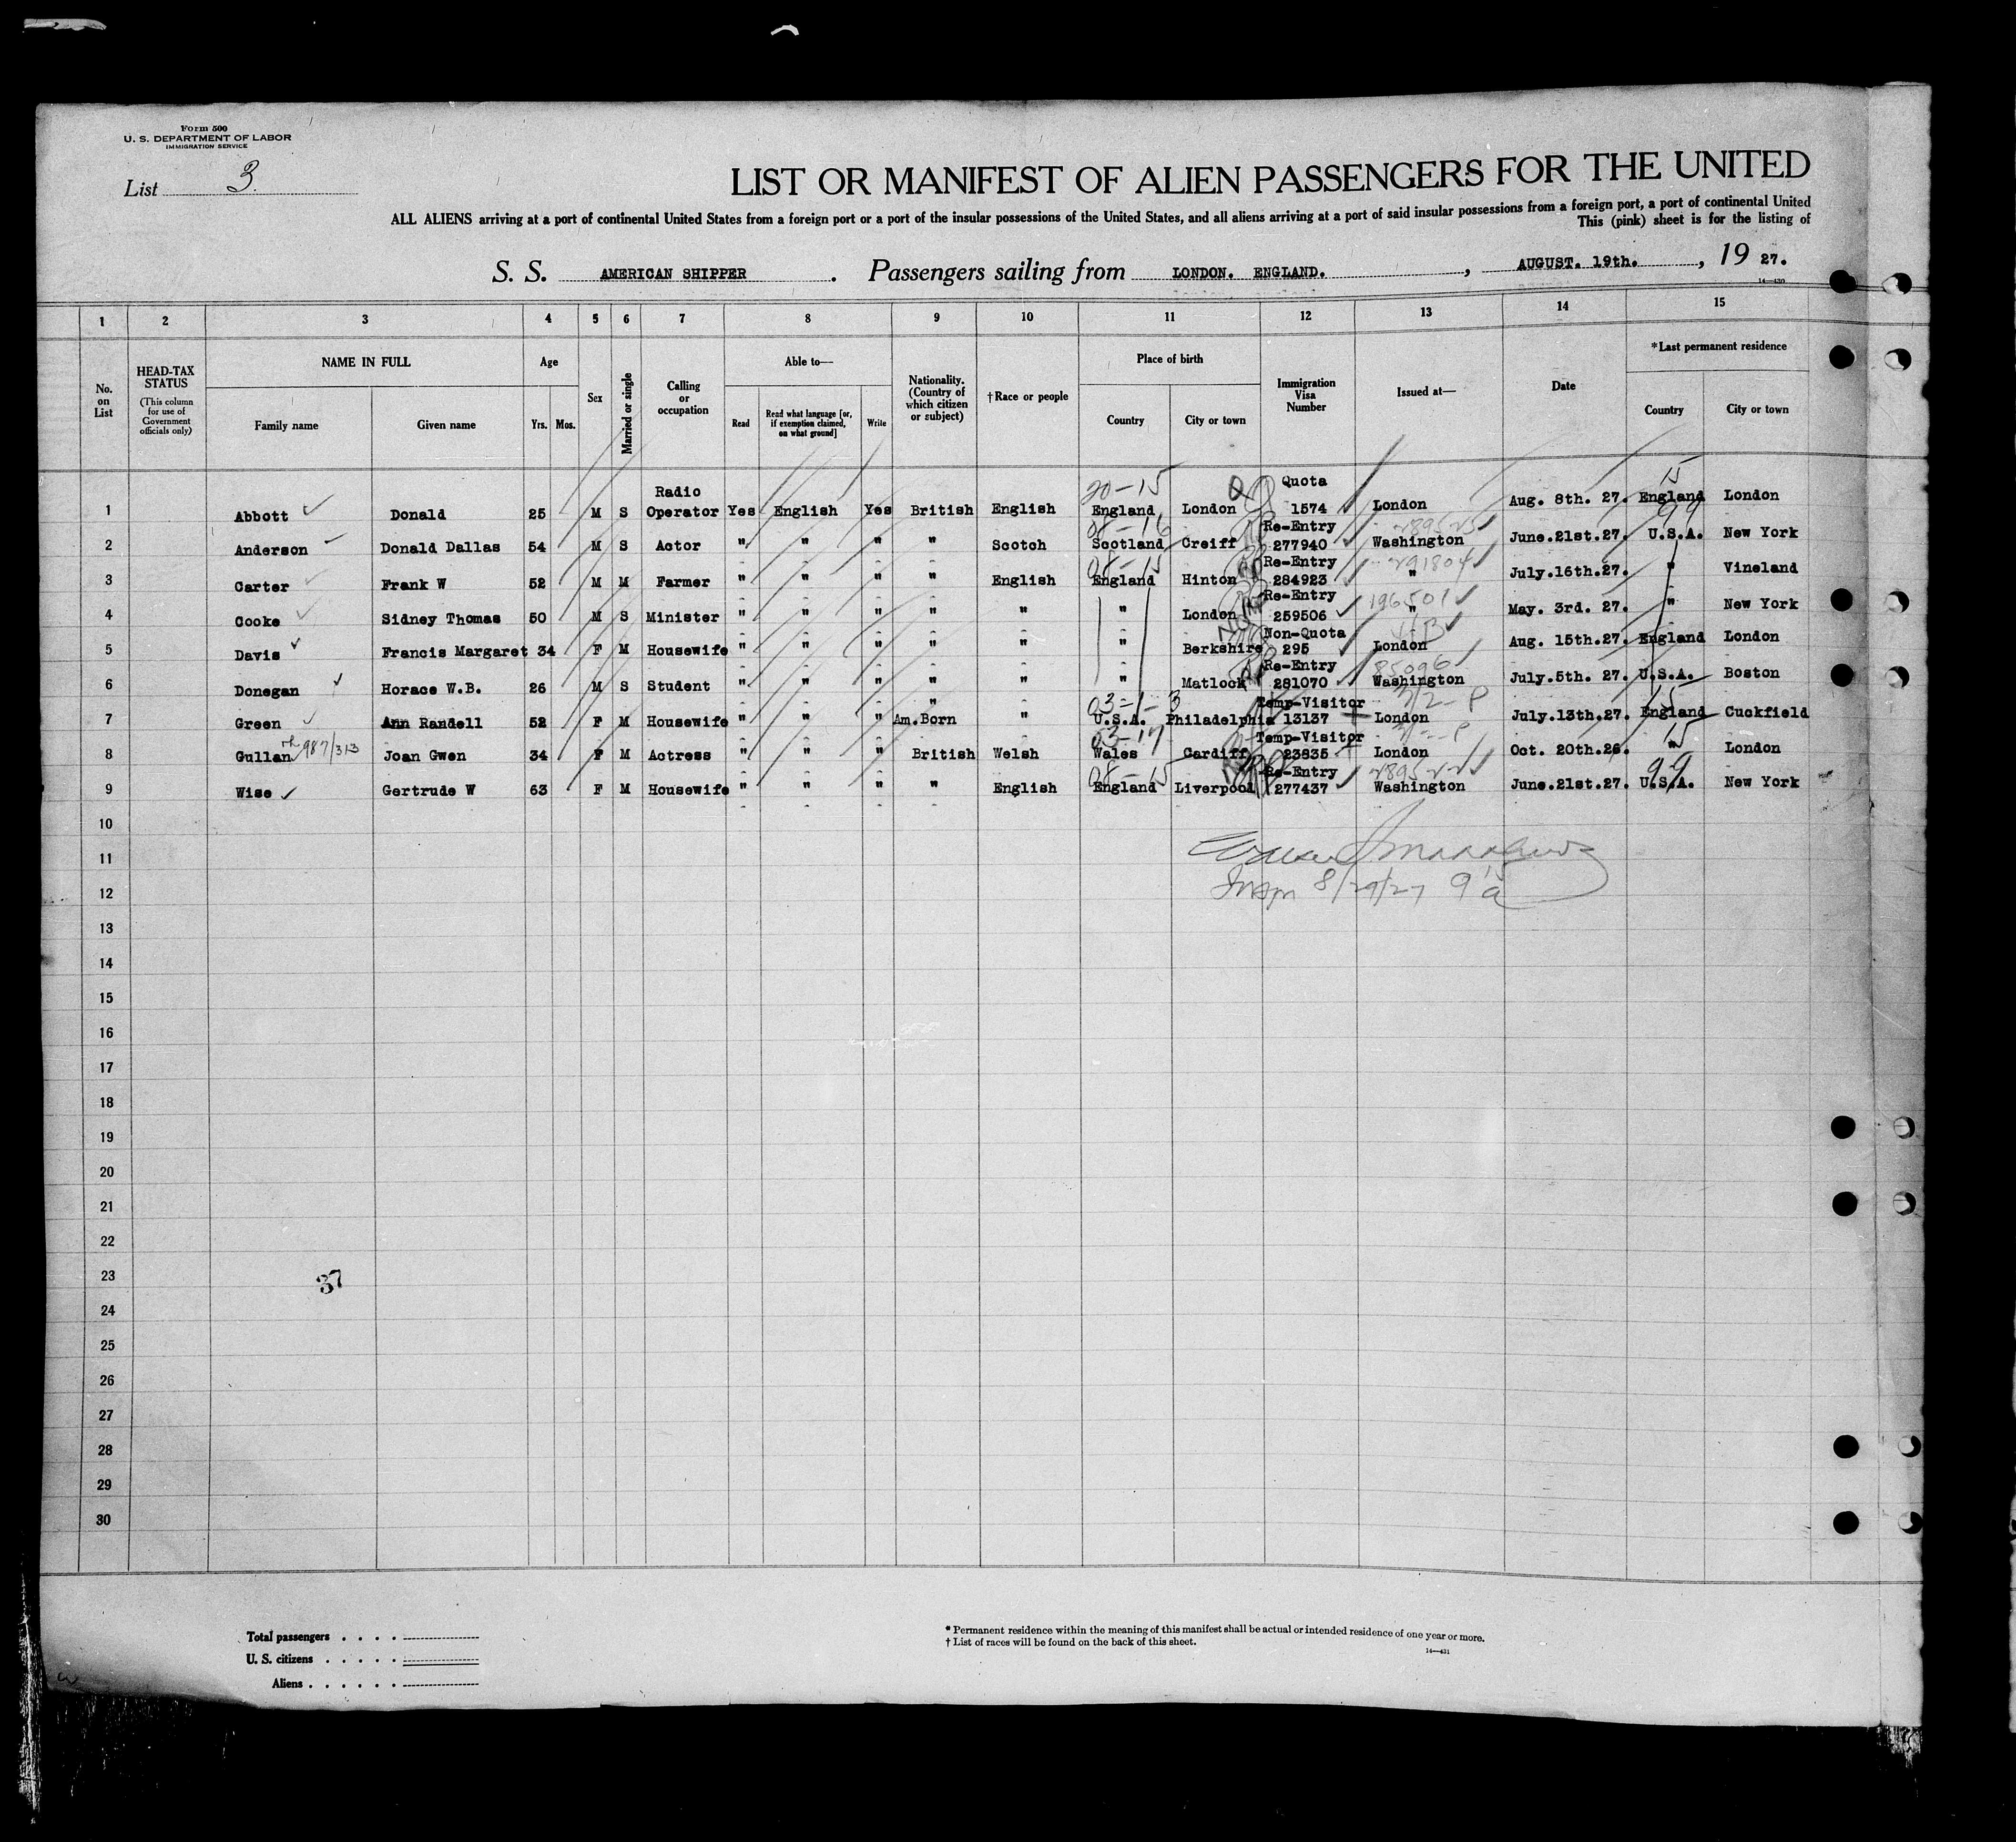 Form 500
U. S. DEPARTMENT OF LABOR
IMMIGRATION SERVICE
List 3.
LIST OR MANIFEST OF ALIEN PASSENGERS FOR THE UNITED
ALL ALIENS arriving at a port of continental United States from a foreign port or a port of the insular possessions of the United States, and all aliens arriving at a port of said insular possessions from a foreign port, a port of continental United
This (pink) sheet is for the listing of
S. S. AMERICAN SHIPPER. Passengers sailing from LONDON. ENGLAND., AUGUST. 19th., 19 27.
14—430
1 2 3 4 5 6 7 8 9 10 11 12 13 14 15
No. on List
HEAD-TAX STATUS
(This column for use of Government officials only)
NAME IN FULL
Family name Given name
Age
Yrs. Mos.
Sex
Married or single
Calling or occupation
Able to—
Read
Read what language [or, if exemption claimed, on what ground]
Write
Nationality. (Country of which citizen or subject)
†Race or people
Place of birth
Country City or town
Immigration Visa Number
Issued at—
Date
*Last permanent residence
Country City or town
20-15 Q 15
1 Abbott Donald 25 M S Radio Operator Yes English Yes British English England London Quota 1574 London Aug. 8th. 27. England London
08-16 99
2 Anderson Donald Dallas 54 M S Actor " " " " Scotch Scotland Creiff Re-Entry 277940 Washington June.21st.27. U.S.A. New York
08-15 291804
3 Carter Frank W 52 M M Farmer " " " " English England Hinton Re-Entry 284923 " July.16th.27. " Vineland
196501
4 Cooke Sidney Thomas 50 M S Minister " " " " " " London Re-Entry 259506 " May. 3rd. 27. " New York
5 Davis Francis Margaret 34 F M Housewife " " " " " " Berkshire Non-Quota 295 London Aug. 15th.27. England London
85096
6 Donegan Horace W.B. 26 M S Student " " " " " " Matlock Re-Entry 281070 Washington July.5th. 27. U.S.A. Boston
03-1-3 15
7 Green Ann Randell 52 F M Housewife " " " Am.Born " U.S.A. Philadelphia Temp-Visitor 13137 London July.13th.27. England Cuckfield
987/313 03-17 15
8 Gullan Joan Gwen 34 F M Actress " " " British Welsh Wales Cardiff Temp-Visitor 23835 London Oct. 20th.26. " London
08-15 289522 99
9 Wise Gertrude W 63 F M Housewife " " " " English England Liverpool Re-Entry 277437 Washington June.21st.27. U.S.A. New York
10
11
Insp 8/29/27 9 a
12
13
14
15
16
17
18
19
20
21
22
23
37
24
25
26
27
28
29
30
Total passengers . . . .
U. S. citizens . . . . .
Aliens . . . . . .
* Permanent residence within the meaning of this manifest shall be actual or intended residence of one year or more.
† List of races will be found on the back of this sheet.
14—431